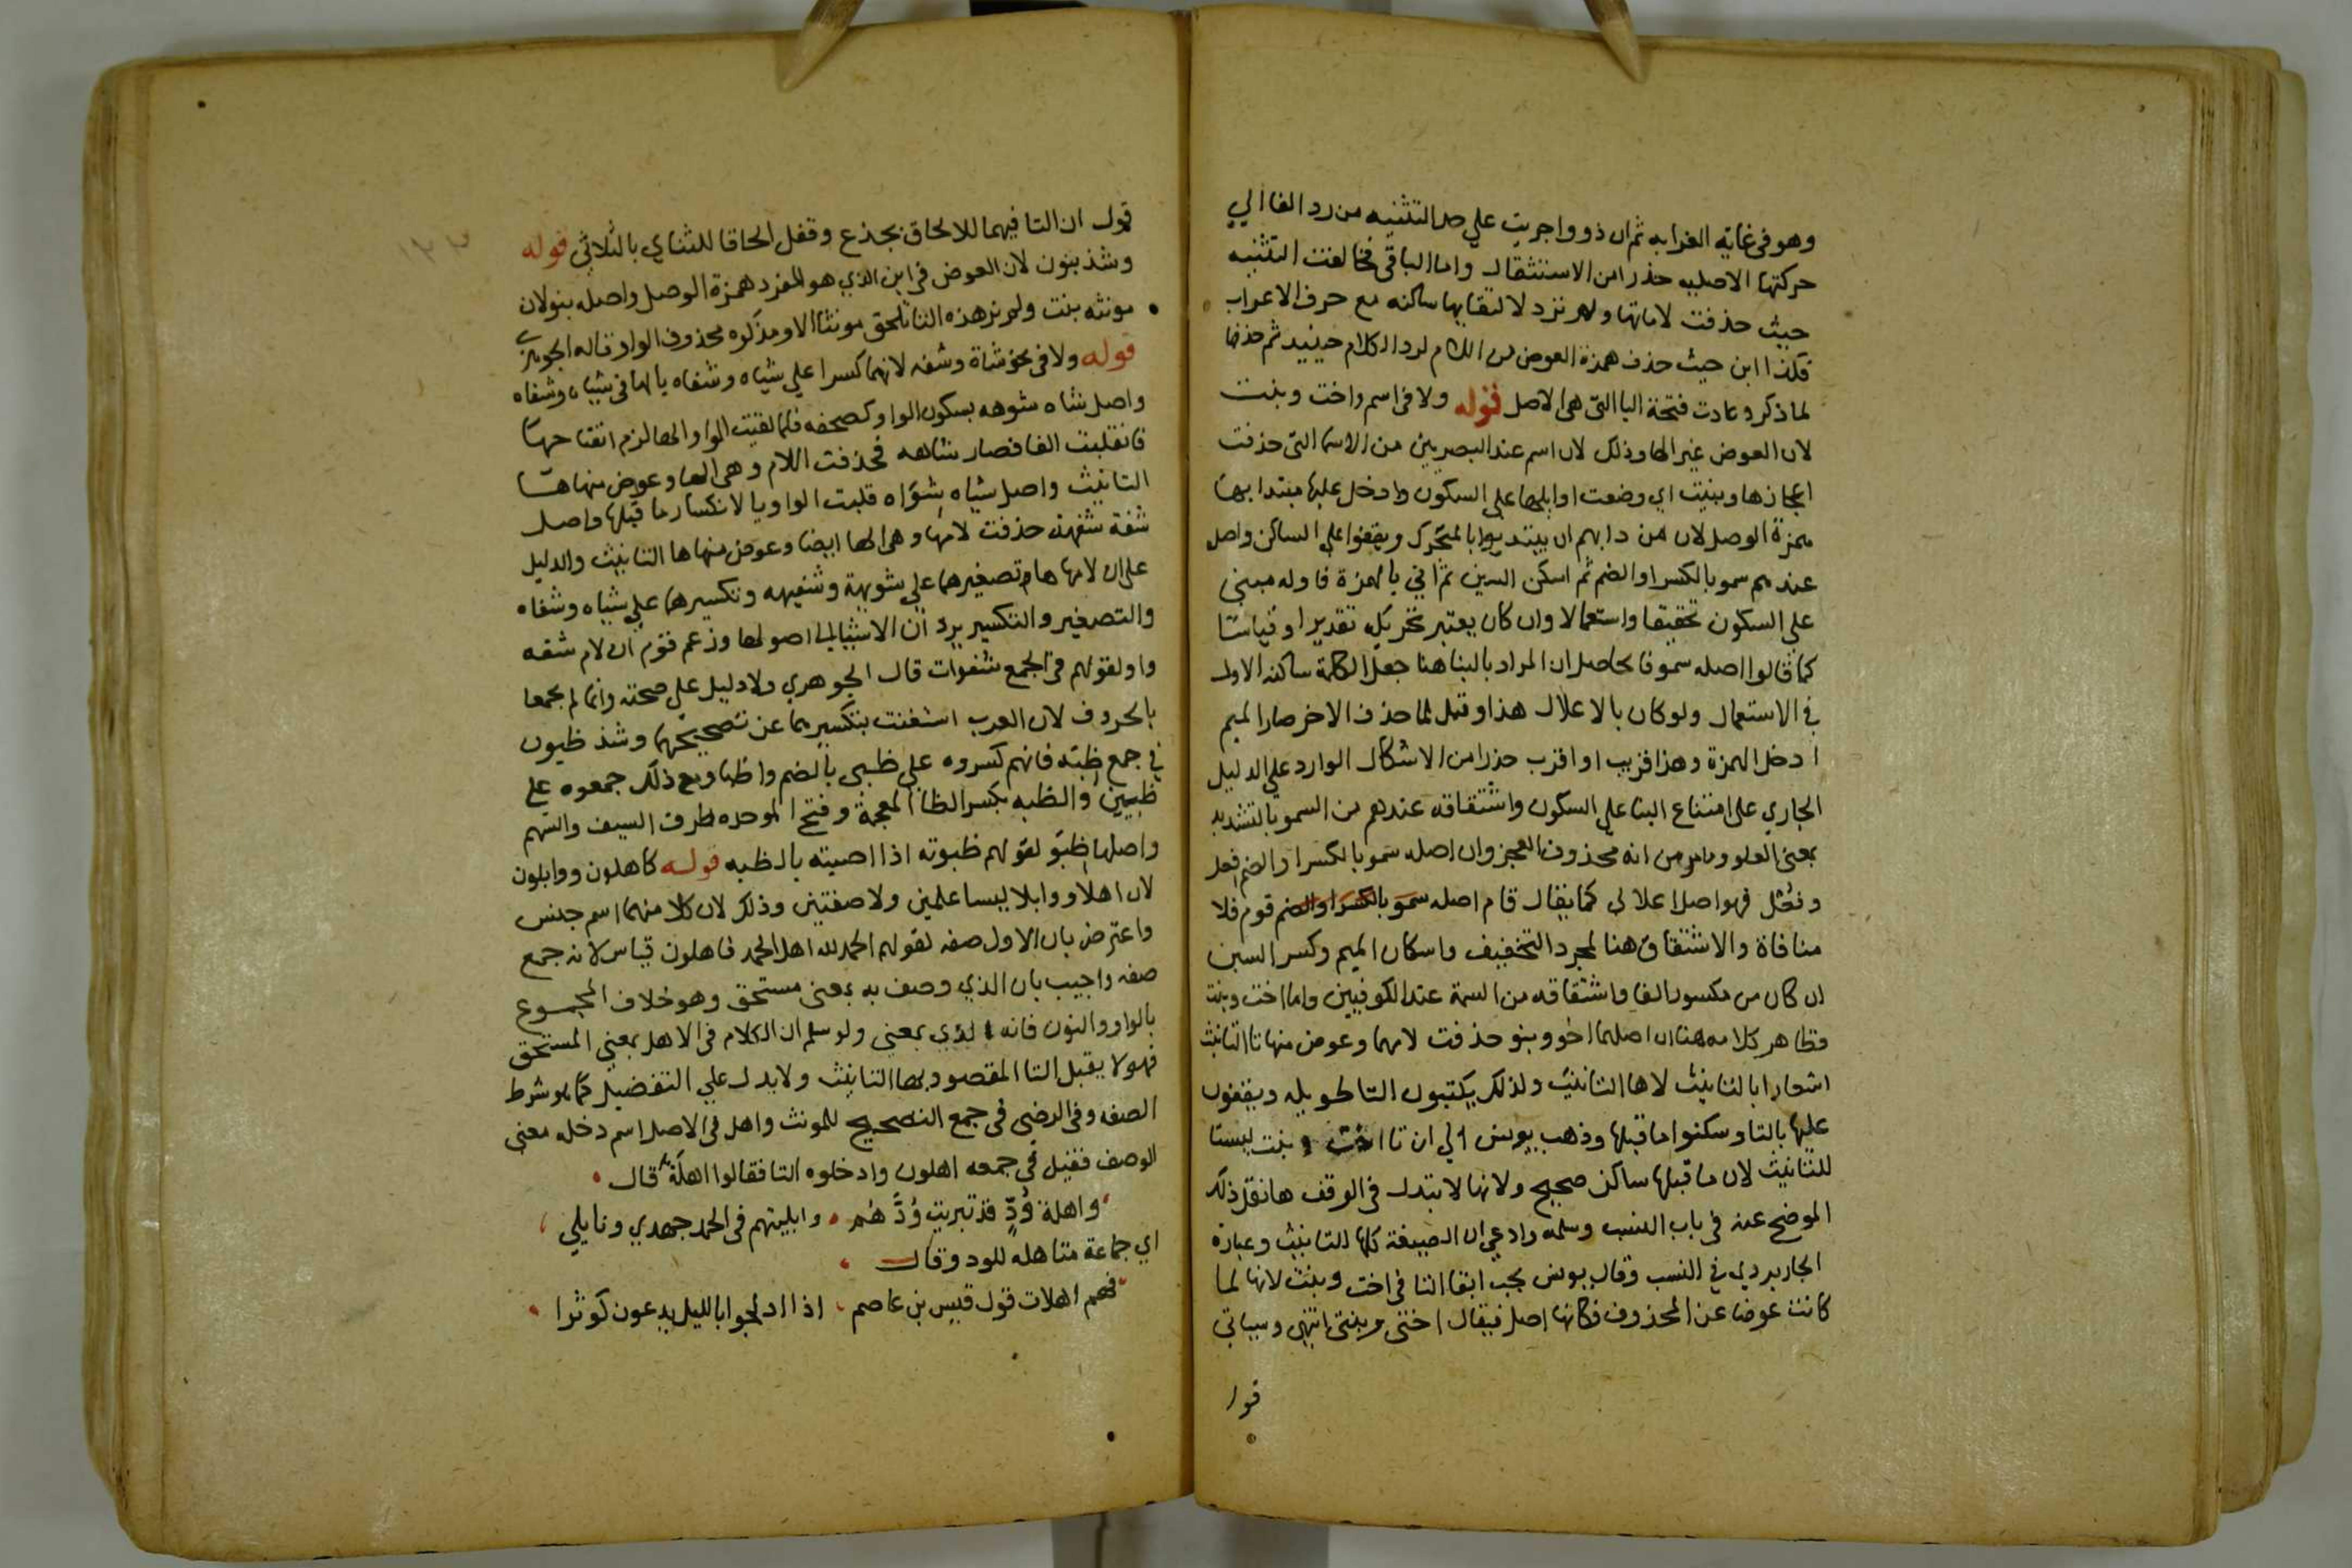 وهو في غاية الغرابه ثم ان ذوو اجريت علي حد التثنيه من رد الفا الي
حركتها الاصليه حذرا من الاستثقال واما الباقي فخالفت التثنيه
حيث حذفت لاماتها ولم ترد لالتقايها ساكنه مع حرف الاعراب
فكذا ابن حيث حذف همزة العوض من اللام لرد اللام حينيد ثم حذفها
لما ذكر وعادت فتحة البا التي هي الاصل قوله ولا في اسم واخت وبنت
لان العوض غير الها وذلك لان اسم عند البصريين من الاسما التي حذفت
اعجازها وبنيت اي وضعت اوايلها علي السكون وادخل عليها مبتدا بها
همزة الوصل لان من دابهم ان يبتديوا بالمتحرك ويقفوا علي الساكن واصله
عندهم سمو بالكسر او الضم ثم اسكن السين ثم اتي بالهمزة فاوله مبني
علي السكون تحقيقا واستعمالا وان كان يعتبر تحريكه تقديرا وقياسا
كما قالوا اصله سمو فالحاصل ان المراد بالبنا هنا جعل الكلمة ساكنه الاول
في الاستعمال ولو كان بالاعلال هذا وقيل لما حذف الاخر صار الميم
ادخل الهمزة وهذا قريب او اقرب حذرا من الاشكال الوارد علي الدليل
الجاري علي امتناع البنا علي السكون واشتقاقه عندهم من السمو بالتشديد
بمعني العلو وما مر من انه محذوف العجز وان اصله سمو بالكسر او الضم فعل
وفعل فهو اصل اعلالي كما يقال قام اصله سمو بالكسر او الضم قوم فلا
منافاة والاشتقاق هنا لمجرد التخفيف واسكان الميم وكسر السين
ان كان من مكسور الفا واشتقاقه من السمة عند الكوفيين واما اخت وبنت
فظاهر كلامه هنا ان اصلهما اخو وبنو حذفت لامهما وعوض منها تا التانيث
اشعارا بالتانيث لاها التانيث ولذلك يكتبون التا طويله ويقفون
عليها بالتا وسكنوا ما قبلها وذهب يونس الي ان تا اخت وبنت ليستا
للتانيث لان ما قبلها ساكن صحيح ولانها لا تبدل في الوقف ها نقل ذلك
الموضح عنه في باب النسب وسلمه وادعي ان الصيغة كلها للتانيث وعبارة
الجاربردي في النسب وقال يونس يجب ابقا التا في اخت وبنت لانها لما
كانت عوضا عن المحذوف فكانها اصل فيقال اختي وبنتي انتهي وسياتي
قوله
قول ان التا فيهما للالحاق بجذع وقفل الحاقا للثناي بالثلاثي قوله
وشذ بنون لان العوض في ابن الذي هو المفرد همزة الوصل واصله بنو لان
مونثه بنت ولم نر هذه التا تلحق مونثا الا ومذكره محذوف الواو قاله الجوهري
قوله ولا في نحو شاة وشفه لانهما كسرا علي شياه وشفاه بالها في شياه وشفاه
واصل شاه شوهه بسكون الواو كصحفه فلما لقيت الواو الها لزم انفتاحها
فانقلبت الفا فصار شاهه فحذفت اللام وهي الها وعوض منها ها
التانيث واصل شياه شواه قلبت الواو يا لانكسار ما قبلها واصل
شفة شفهة حذفت لامها وهي الها ايضا وعوض منها ها التانيث والدليل
علي ان لامها ها تصغيرهما علي شويهة وشفيهه وتكسيرهما علي شياه وشفاه
والتصغير والتكسير يردان الاشيا الي اصولها وزعم قوم ان لام شفه
واو لقولهم في الجمع شفوات قال الجوهري ولا دليل علي صحته وانما لم يجمعا
بالحروف لان العرب استغنت بتكسيرهما عن تصحيحهما وشذ ظبون
في جمع ظبة فانهم كسروه علي ظبي بالضم واظب ومع ذلك جمعوه علي
ظبين والظبه بكسر الظا المعجمة وفتح الموحده طرف السيف والسهم
واصلها ظبو لقولهم ظبوته اذا اصبته بالظبه قوله كاهلون ووابلون
لان اهلا ووابلا ليسا علمين ولا صفتين وذلك لان كلا منهما اسم جنس
واعترض بان الاول صفه لقولهم الحمد لله اهل الحمد فاهلون قياس لانه جمع
صفه واجيب بان الذي وصف به بمعني مستحق وهو خلاف المجموع
بالواو والنون فانه لذي بمعني ولو سلم ان الكلام في الاهل بمعني المستحق
فهو لا يقبل التا المقصود بها التانيث ولا يدل علي التفضيل كما هو شرط
الصفه وفي الرضي في جمع التصحيح للمونث واهل في الاصل اسم دخله معني
الوصف فقيل في جمعه اهلون وادخلوه التا فقالوا اهلة قال
واهلة ود قد تبريت ودهم وابليتهم في الحمد جهدي ونايلي
اي جماعة متاهله للود وقال
فهم اهلات حول قيس بن عاصم اذا ادلجوا بالليل يدعون كوثرا